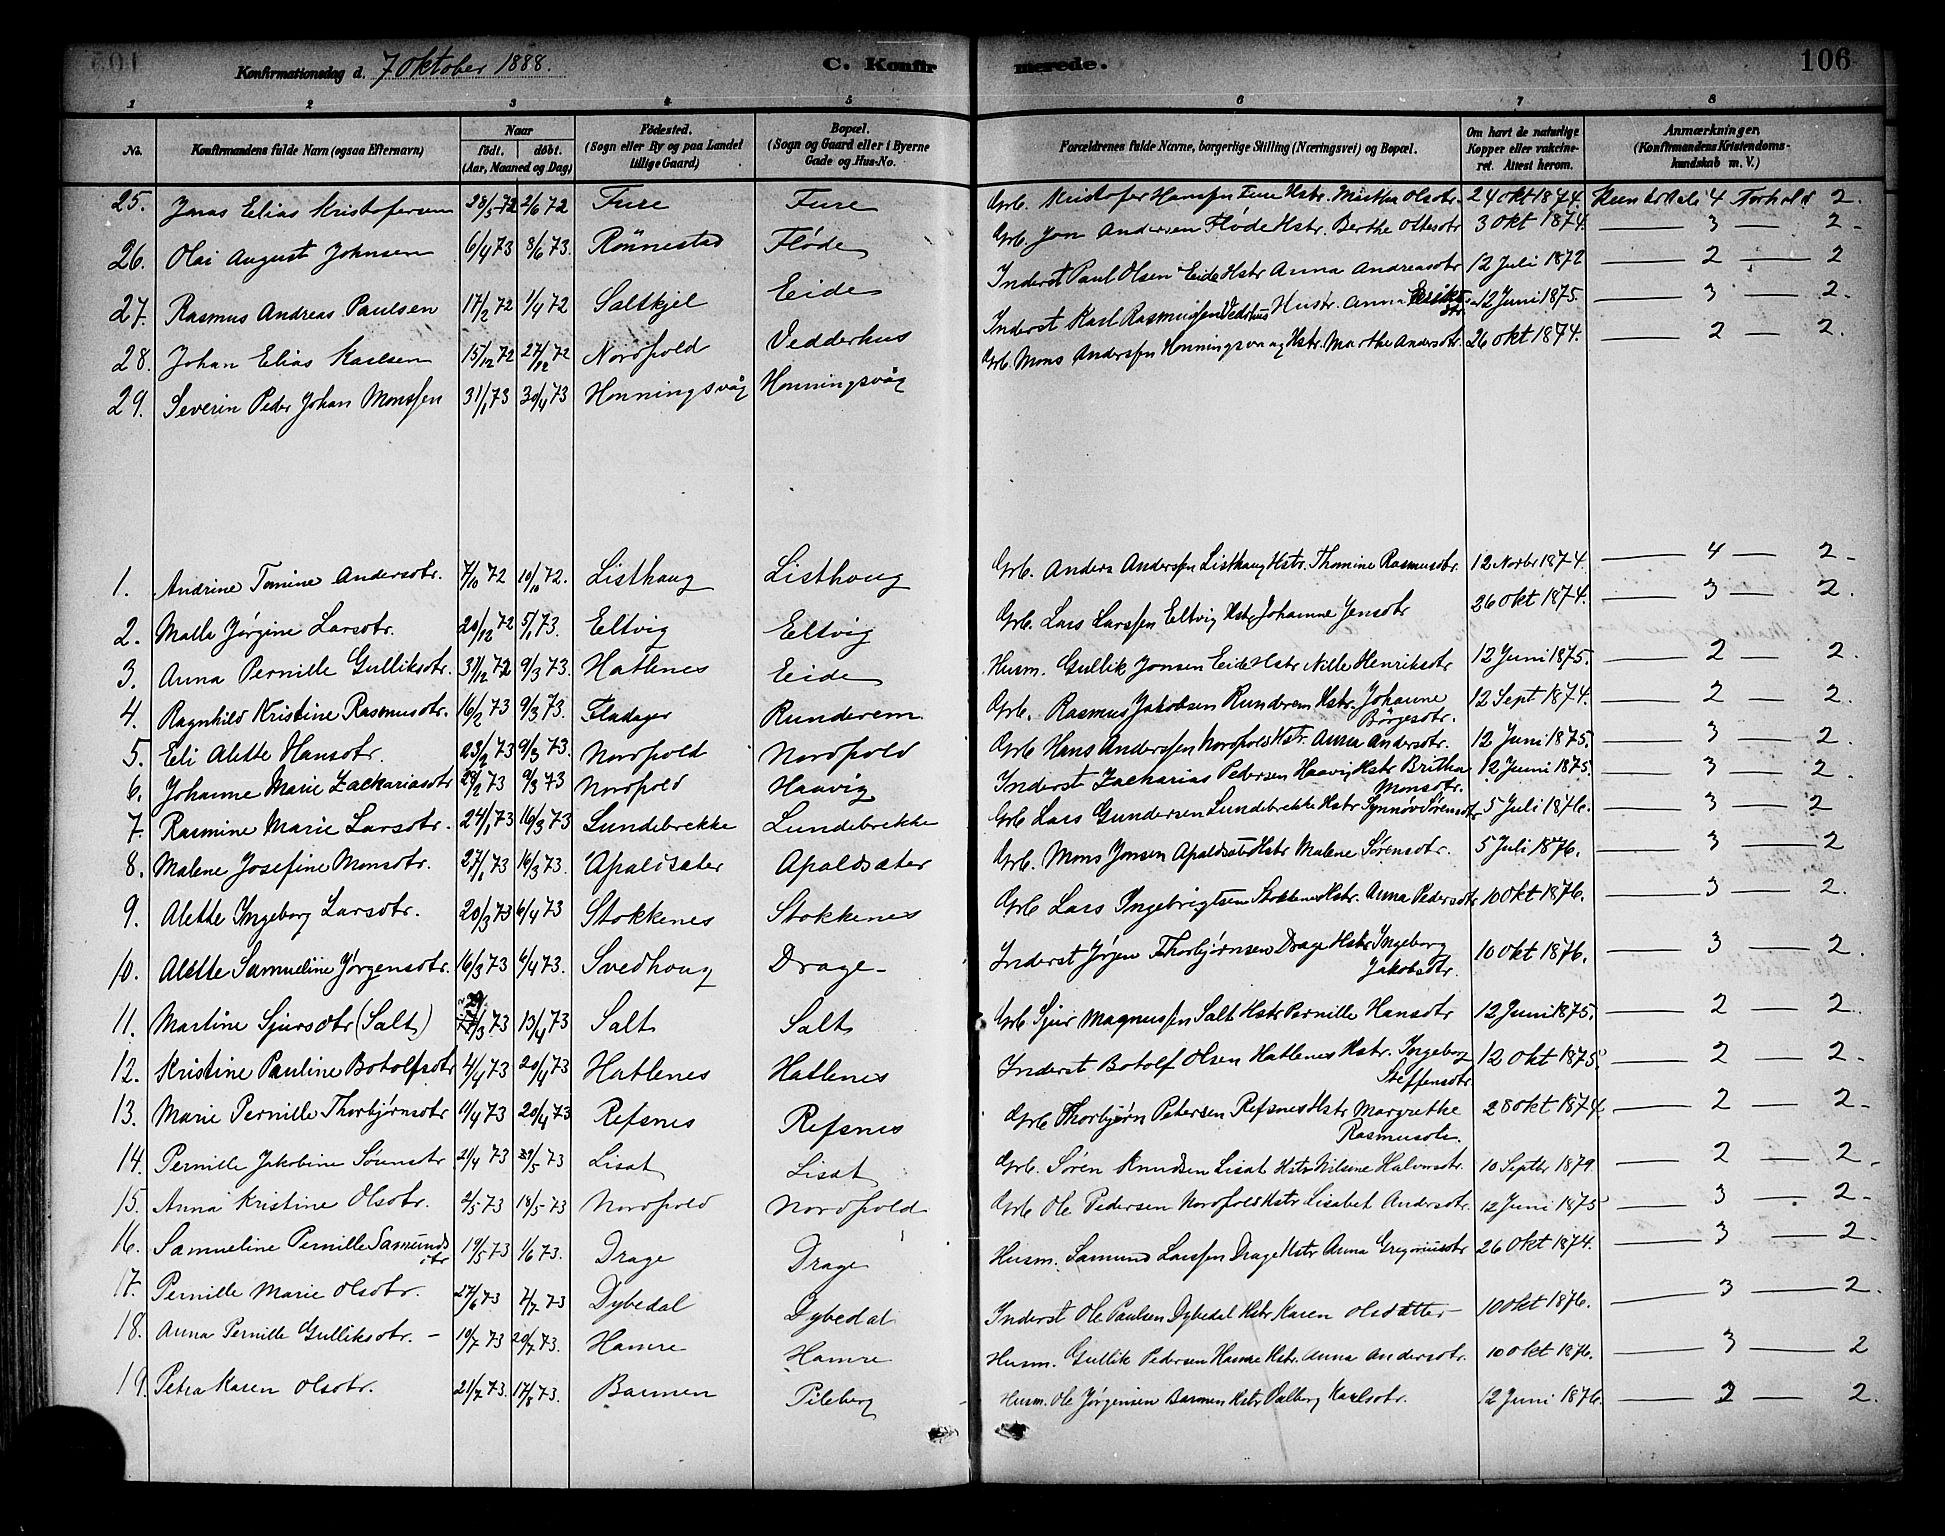 Konfirmationsdag d. 7 Oktober 1888. C. Konfir merede. 106
1 2 3 4 5 6 7 8
No. Konfirmandens fulde Navn (ogsaa Efternavn) Naar født. døbt. (Aar, Maaned og Dag) Fødested. (Sogn eller By og paa Landet tillige Gaard) Bopæl. (Sogn og Gaard eller i Byerne Gade og Hus-No. Forældrenes fulde Navne, borgerlige Stilling (Næringsvei) og Bopæl. Om havt de naturlige Kopper eller vakcineret. Attest herom. Anmærkninger. (Konfirmandens Kristendomskundskab m. V.)
25. Jonas Elias Kristofersen 28/5 72 2/6 72 Fure Fure Grb. Kristofer Hanssen Fure Hstr. Olsdtr. 24 Okt 1874. Kundskab 4 Forhold 2.
26. Olai August Johnsen 6/4 73 8/6 73. Rønnestad Fløde Grb. Jon Andersen Fløde Hstr. Berthe Ottesdtr 3 Okt 1874. — 3 — 2.
27. Rasmus Andreas Paulsen 17/2 72 1/4 72 Saltskjel Eide Inderst Paul Olsen Eide Hstr Anna Andreasdtr 12 Juli 1872 — 2 — 2
28. Johan Elias Karlsen 15/12 72 27/12 72 Nordpold Vedderhus Inderst Karl Rasmussen Vedrhus Hustr. Anna Eriksdtr. 12 Juni 1875. — 3 — 2.
29. Severin Peder Johan Monssen 31/1 73 30/4 73 Honningsvåg Honningsvåg Grb. Mons Anderssen Honningsvaag Hstr. Marthe Andersdtr. 26 Okt 1874. — 2 — 2.
1. Andrine Tomine Andersdtr. 7/10 72 10/10 72. Listhaug Listhoug Grb. Anders Anderssen Listhaug Hstr. Thomine Rasmusdtr. 12 Novbr 1874. — 4 — 2.
2. Malla Jørgine Larsdtr. 20/12 72 5/1 73. Eltvig Eltvig Grb. Lars Larssen Eltvig Hstr Johanne Jensdtr 26 Okt 1874. — 3 — 2.
3. Anna Pernille Gulliksdtr. 31/12 72 9/3 73. Hatlenes Eide Husm. Gullik Jonsen Eide Hstr Nille Henriksdtr 12 Juni 1875. — 2 — 2.
4. Ragnhild Kristine Rasmusdtr. 16/2 73 9/3 73. Fladager Runderem Grb. Rasmus Jakobsen Runderem Hstr. Johanne Børgesdtr. 12 Sept 1874. — 2 — 2.
5. Eli Alette Hansdtr. 23/2 73 9/3 73. Nordpold Nordpold Grb Hans Anderssen Nordpold Hstr. Anna Andersdtr. 12 Juni 1875. — 3 — 2.
6. Johanne Marie Zachariasdtr 28/2 73 9/3 73 Nordpold Haavig Inderst Zacharias Pedersen Haavig Hstr Britha Monsdtr. 12 Juni 1875. — 3 — 2.
7. Rasmine Marie Larsdtr. 24/1 73 16/3 73 Lundebrekke Lundebrekke Grb Lars Gundersen Lundebrekke Hstr Synnøv Sørensdtr 5 Juli 1876. — 3 — 2
8. Malene Josefine Monsdtr. 27/1 73 16/3 73 Apaldsæter Apaldsæter Grb. Mons Jonsen Apaldsæt Hstr Malene Sørensdtr. 5 Juli 1876. — 3 — 2
9. Alette Ingeborg Larsdtr. 20/3 73 6/4 73 Stokkenes Stokkenes Grb Lars Ingebrigtsen Stokkenes Hstr. Anna Pedersdtr 10 Okt 1876. — 3 — 2.
10. Alette Samueline Jørgensdtr. 16/3 73 6/4 73. Svedhoug Drage Inderst Jørgen Thorbjørnsen Drage Hstr Ingeborg Jakobsdtr. 10 Okt 1876. — 3 — 2.
11. Martine Sjursdtr (Salt) 29/3 73 13/4 73 Salt Salt Grb Sjur Magnussen Salt Hstr Pernille Hansdtr 12 Juni 1875. — 2 — 2.
12. Kristine Pauline Botolfsdtr 4/4 73 20/4 73 Hatlenes Hatlenes Inderst Botolf Olsen Hatlenes Hstr. Ingeborg Steffensdtr 12 Okt 1875. — 2 — 2.
13. Marie Pernille Thorbjørnsdtr 11/4 73 20/4 73 Refsnes Refsnes Grb Thorbjørn Petersen Refsnes Hstr Margrethe Rasmusdtr. 28 Okt 1874. — 2 — 2.
14. Pernille Jakobine Sørensdtr 21/4 73 /5 73 Lisæt Lisæt Grb. Søren Knudsen Lisæt Hstr Nilsine Halvorsdtr. 10 Septbr 1879. — 2 — 2.
15. Anna Kristine Olsdtr. 2/5 73 18/5 73 Nordpold Nordpold Grb Ole Pedersen Nordpold Hstr Lisabet Andersdtr. 12 Juni 1875 — 3 — 2.
16. Samueline Pernille Samundsdtr 19/5 73 1/6 73. Drage Drage Husm. Samund Larssen Drage Hstr Anna Gregoriusdtr 26 Okt 1874. — 3 — 2.
17. Pernille Marie Olsdtr. 27/6 73 /7 73 Dybedal Dybedal Inderst Ole Paulsen Dybedal Hstr Karen Olsdatter 10 Okt 1876. — 3 — 2.
18. Anna Pernille Gulliksdtr. 19/7 73 20/7 73. Hamre Hamre Husm. Gullik Pedersen Hamre Hstr. Anna Andersdtr. 10 Okt 1876. — 3 — 2
19. Petra Karen Olsdtr. 21/7 73. 17/8 73. Barmen Pileberg Husm. Ole Jørgensen Barmen Hstr Valberg Karlsdtr. 12 Juni 1876. — 2 — 2.